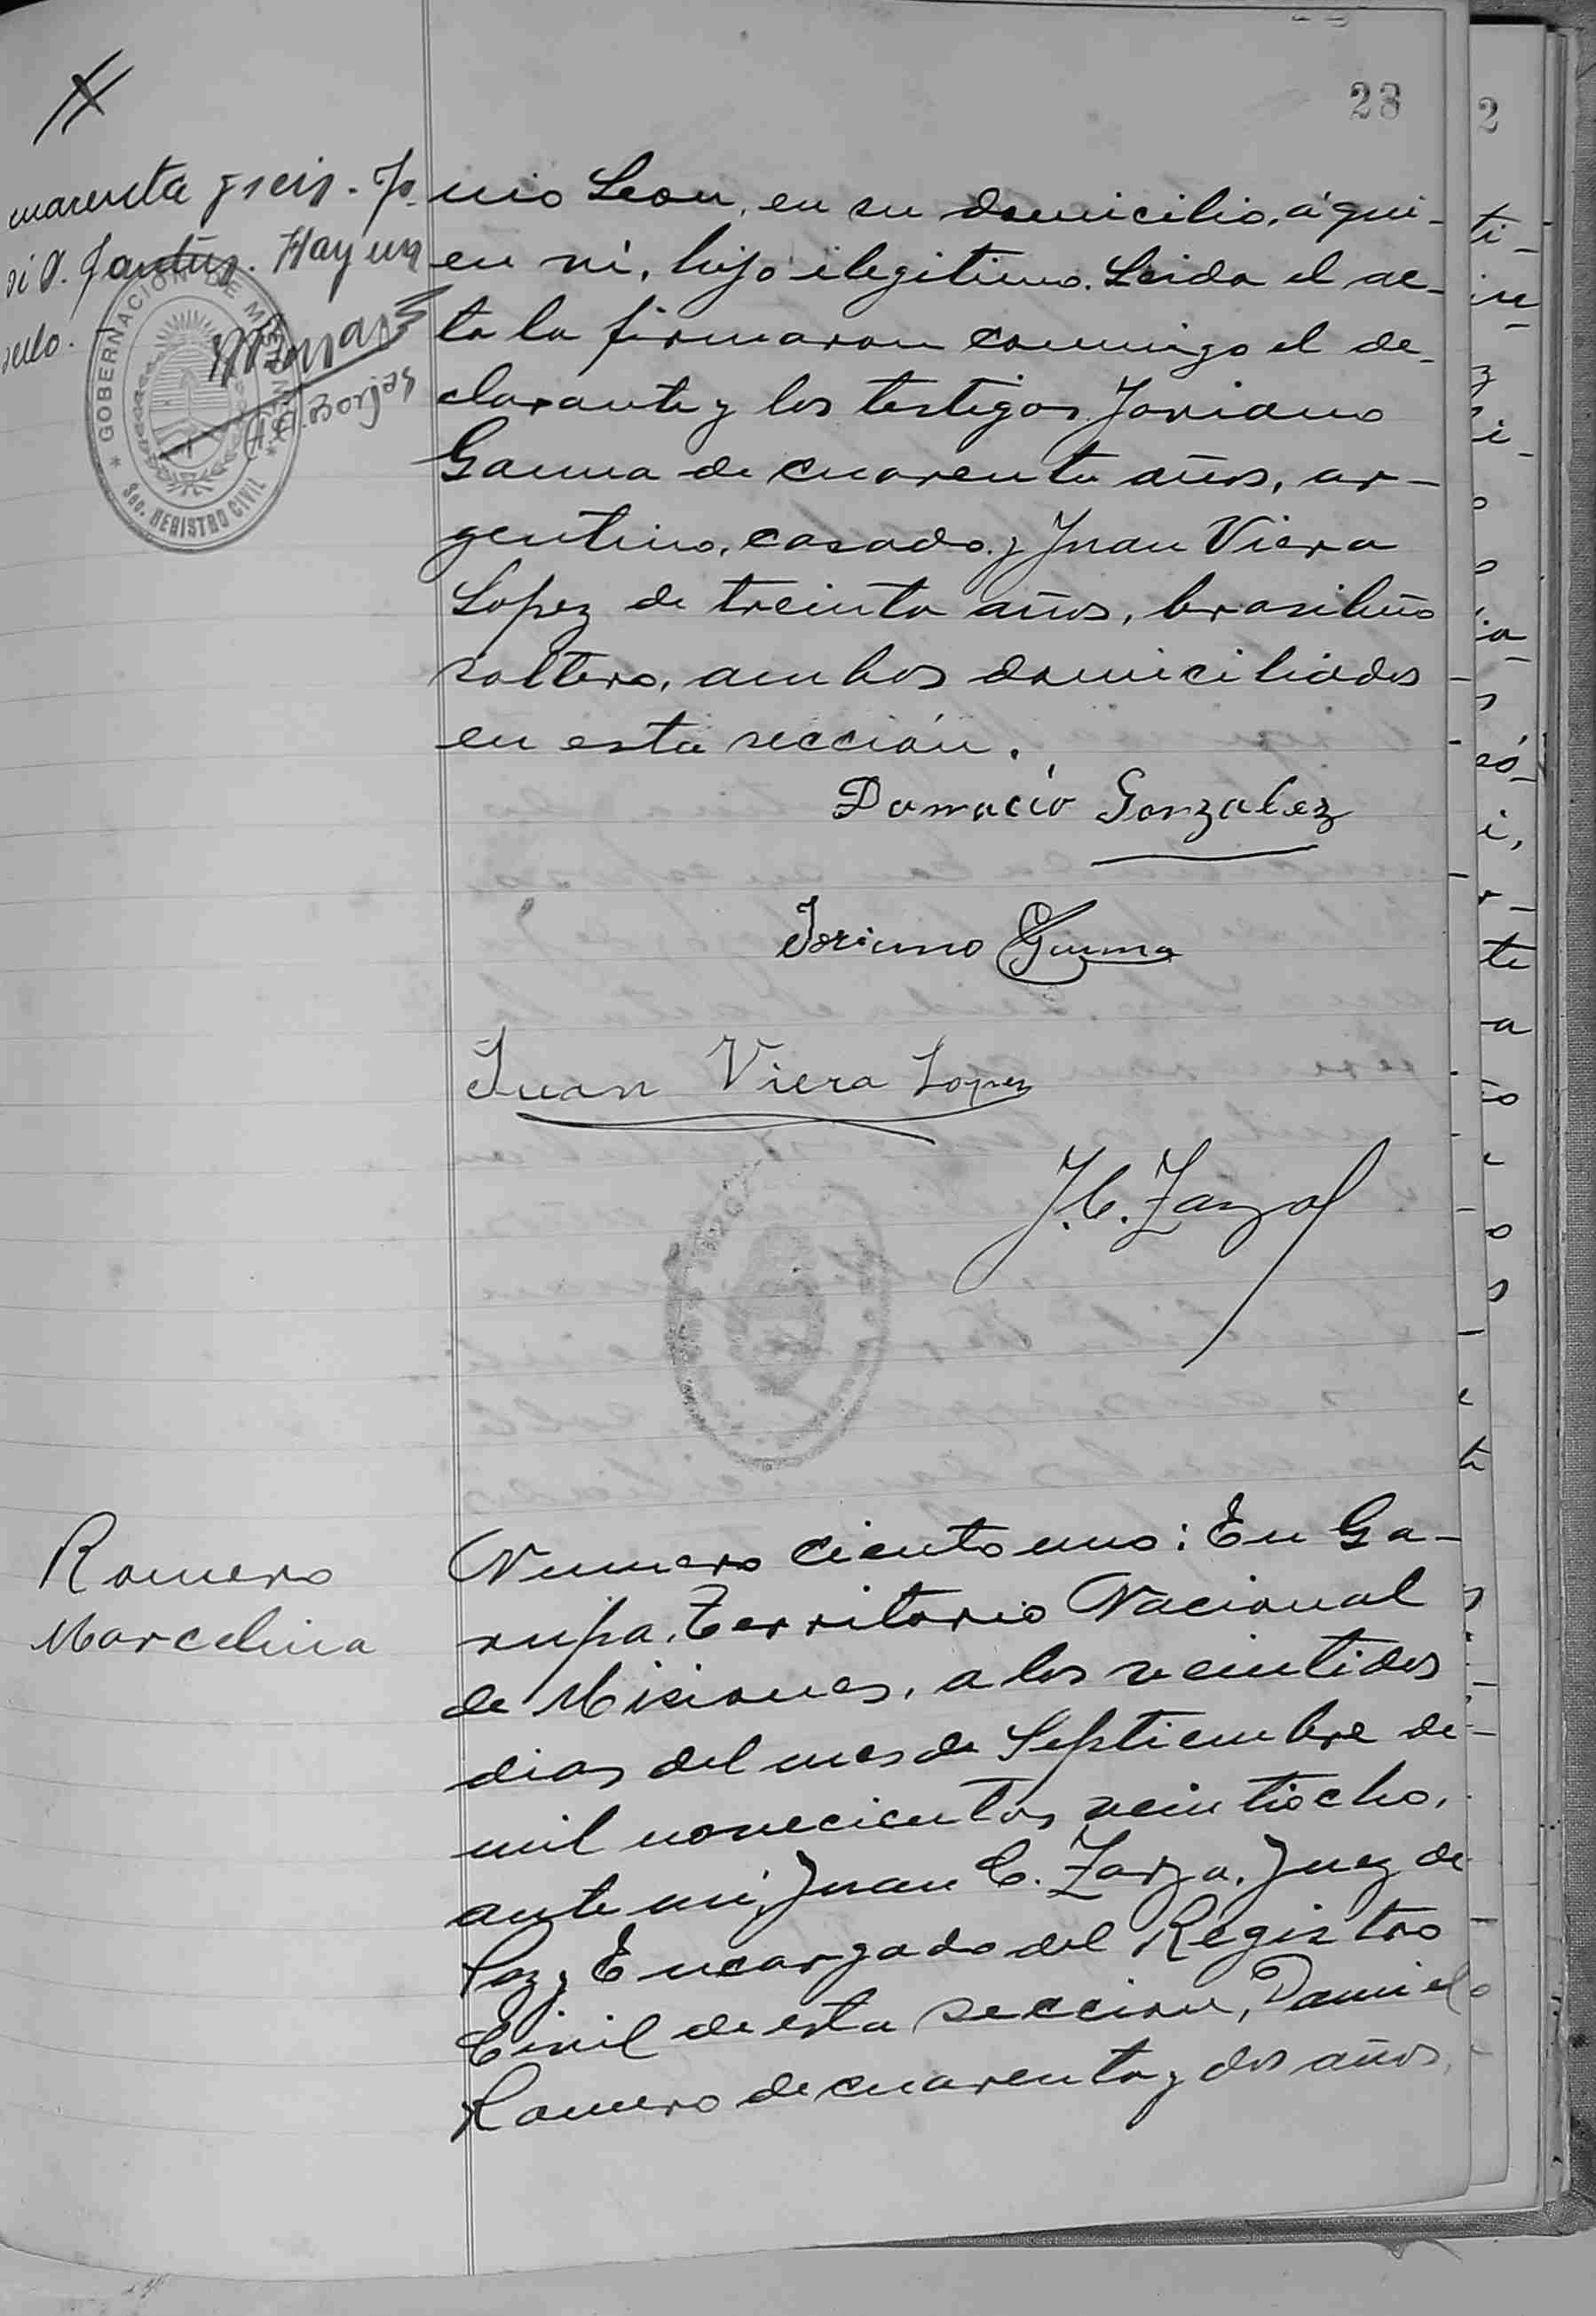 28
marenta y seis. Jo
sé A. Hay un
sello.
GOBERNACION DE MISIONES
Sec. REGISTRO CIVIL
A. Borjas
nio Leon, en su domicilio, á qui-
en ví, hijo ilegitimo. Leida el ac-
ta la firmaron conmigo el de-
clarante y los testigos Joriano
Gauna de cuarenta años, ar-
gentino, casado y Juan Viera
Lopez de treinta años, brasileño
soltero, ambos domiciliados
en esta sección.
Donacio Gonzalez
Joriano Gauna
Juan Viera Lopez
J. C. Zarza
Romero
Marcelina
Numero ciento uno: En Ga-
rupa, Territorio Nacional
de Misiones, a los veintidos
dias del mes de Septiembre de
mil novecientos veintiocho,
ante mi, Juan C. Zarza, Juez de
Paz y Encargado del Registro
Civil de esta seccion, Daniel
Romero de cuarenta y dos años,
2